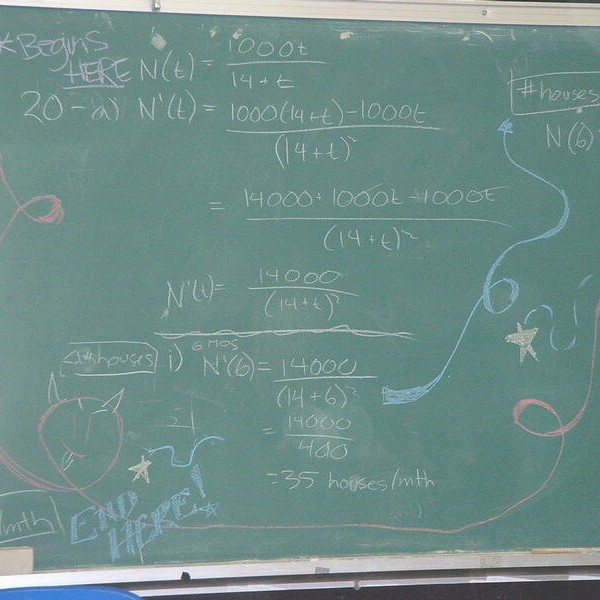 Begins
HERE N(t) = 1000t / 14+t
20-a) N'(t) = 1000(14+t)-1000t / (14+t)²
= 14000+1000t-1000t / (14+t)²
N'(t) = 14000 / (14+t)²
#houses
N(6)
Δ#houses i) 6 MOS N'(6) = 14000 / (14+6)²
= 14000 / 400
=35 houses/mth
/mth
END
HERE!